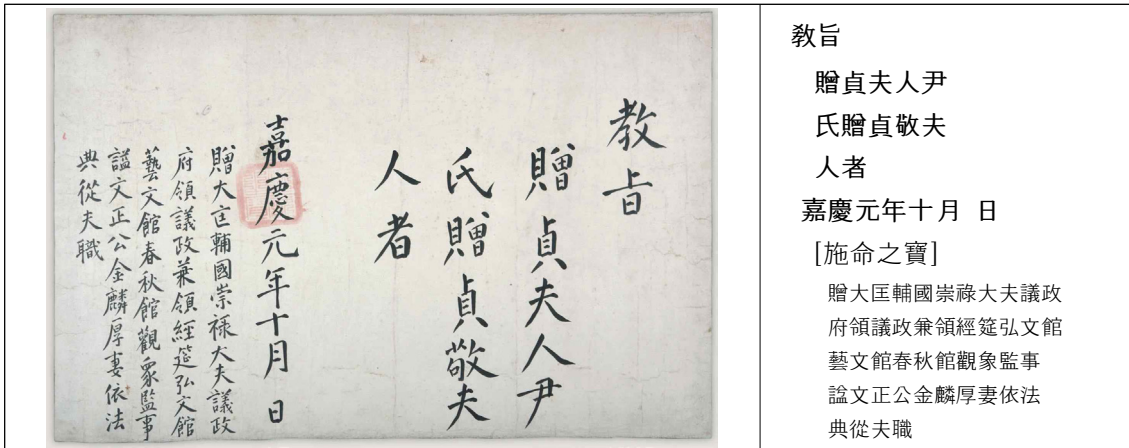 敎旨
贈貞夫人尹
氏贈貞敬夫
人者
嘉慶元年十月日
贈大匡輔國崇祿大夫議政
府領議政兼領經筵弘文館
藝文館春秋館觀象監事
諡文正公金麟厚妻依法
典從夫職
敎旨
贈貞夫人尹
氏贈貞敬夫
人者
嘉慶元年十月 日
[施命之寶]
贈大匡輔國崇祿大夫議政
府領議政兼領經筵弘文館
藝文館春秋館觀象監事
諡文正公金麟厚妻依法
典從夫職